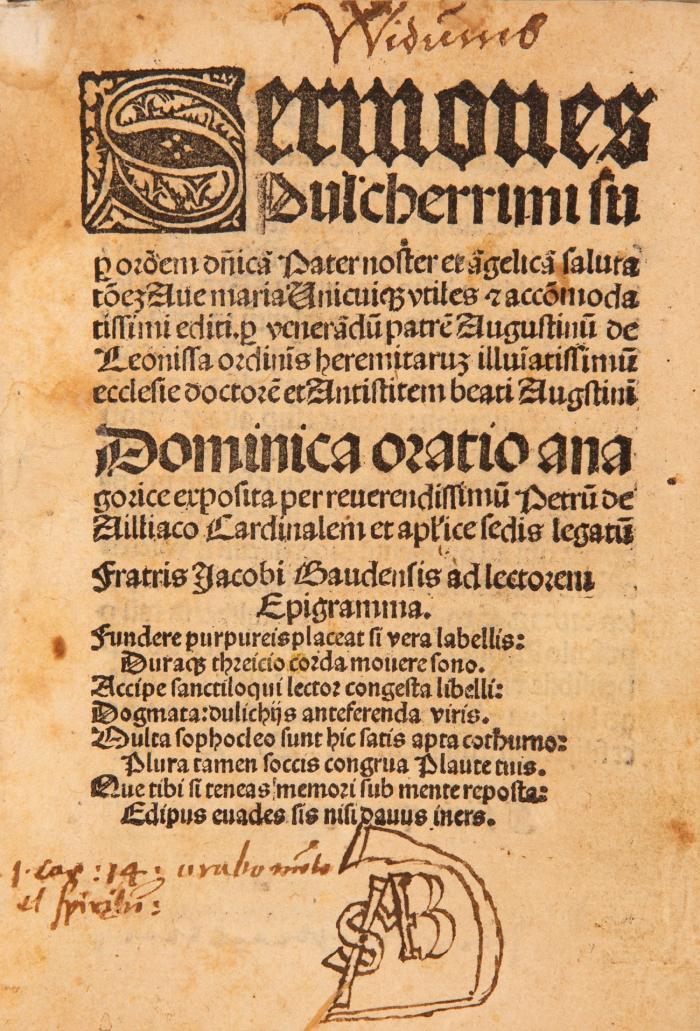 Sermones
Pulcherrimi su
ꝑ ordēm dn̄icā Pater noster et āgelicā saluta
tōeꝫ Aue maria Unicuiqꝫ vtiles ⁊ accōmoda
tissimi editi.ꝑ venerādū patrē Augustinū de
Leonissa ordinis heremitaruꝫ illuīatissimū
ecclesie doctorē et Antistitem beati Augstini
Dominica oratio ana
gorice exposita per reuerendissimū Petrū de
Ailliaco Cardinalem et apl'ice sedis legatū
Fratris Jacobi Gaudensis ad lectorem
Epigramma.
Fundere purpureis placeat si vera labellis:
Duraqꝫ threicio corda mouere sono.
Accipe sanctiloqui lector congesta libelli:
Dogmata: dulichijs anteferenda viris.
Multa sophocleo sunt hic satis apta cothurno:
Plura tamen soccis congrua Plaute tuis.
Que tibi si teneas memori sub mente reposta:
Edipus euades sis nisi dauus iners.
1. cor: 14: orabo
et spiritu:
SAB